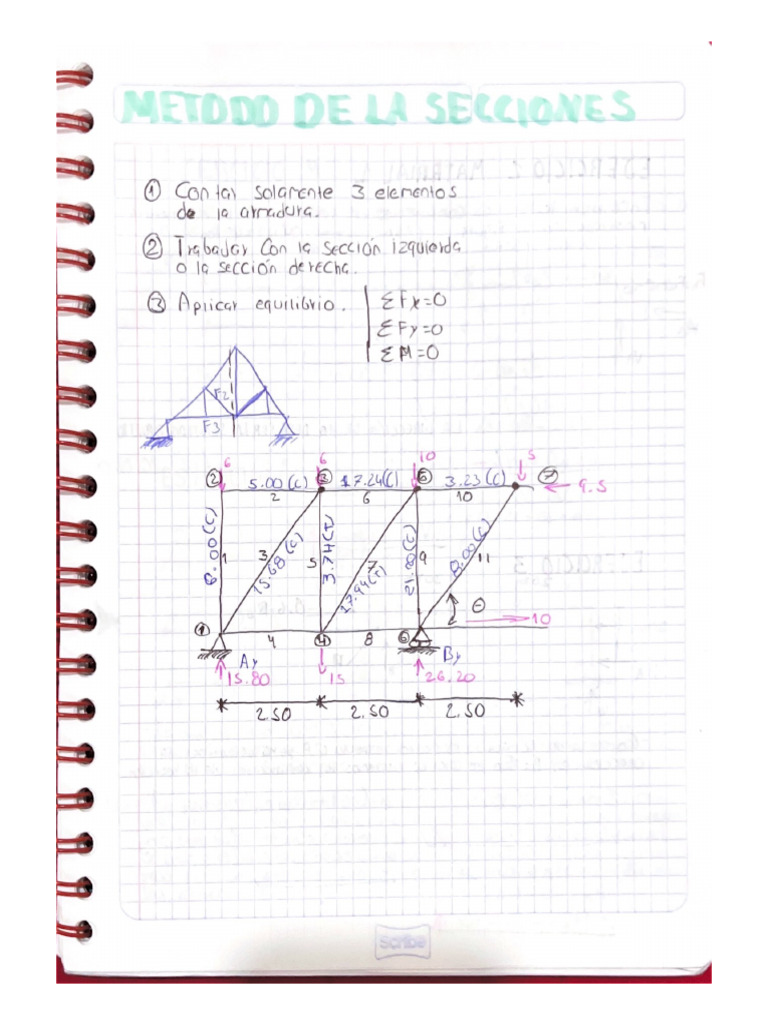 METODO DE LA SECCIONES
① Contar solamente 3 elementos
de la armadura.
② Trabajar con la sección izquierda
o la sección derecha.
③ Aplicar equilibrio. ΣFx=0
ΣFy=0
ΣM=0
F2
F3
6 6 10 5
② 5.00(C) ③ 17.24(C) ⑤ 3.23(C) ⑦
2 6 10 9.5
8.00(C) 1 3 15.68(C) 5 3.74(T) 7 17.94(T) 21.80(C) 9 8.00(C) 11
θ
10
① 4 ④ 8 6
Ay By
15.80 15 26.20
2.50 2.50 2.50
scribe